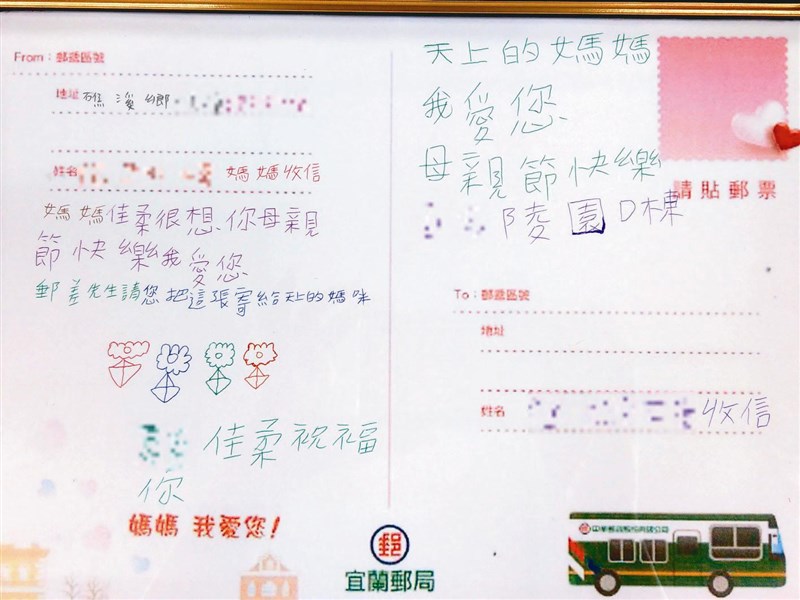 From：郵遞區號
地址 礁溪鄉
姓名 媽媽收信
媽媽佳柔很想你母親
節快樂我愛您
郵差先生請您把這張寄給天上的媽咪
佳柔祝福
你
媽媽 我愛您!
天上的媽媽
我愛您
母親節快樂
請貼郵票
陵園D棟
To：郵遞區號
地址
姓名 收信
郵
宜蘭郵局
中華郵政股份有限公司